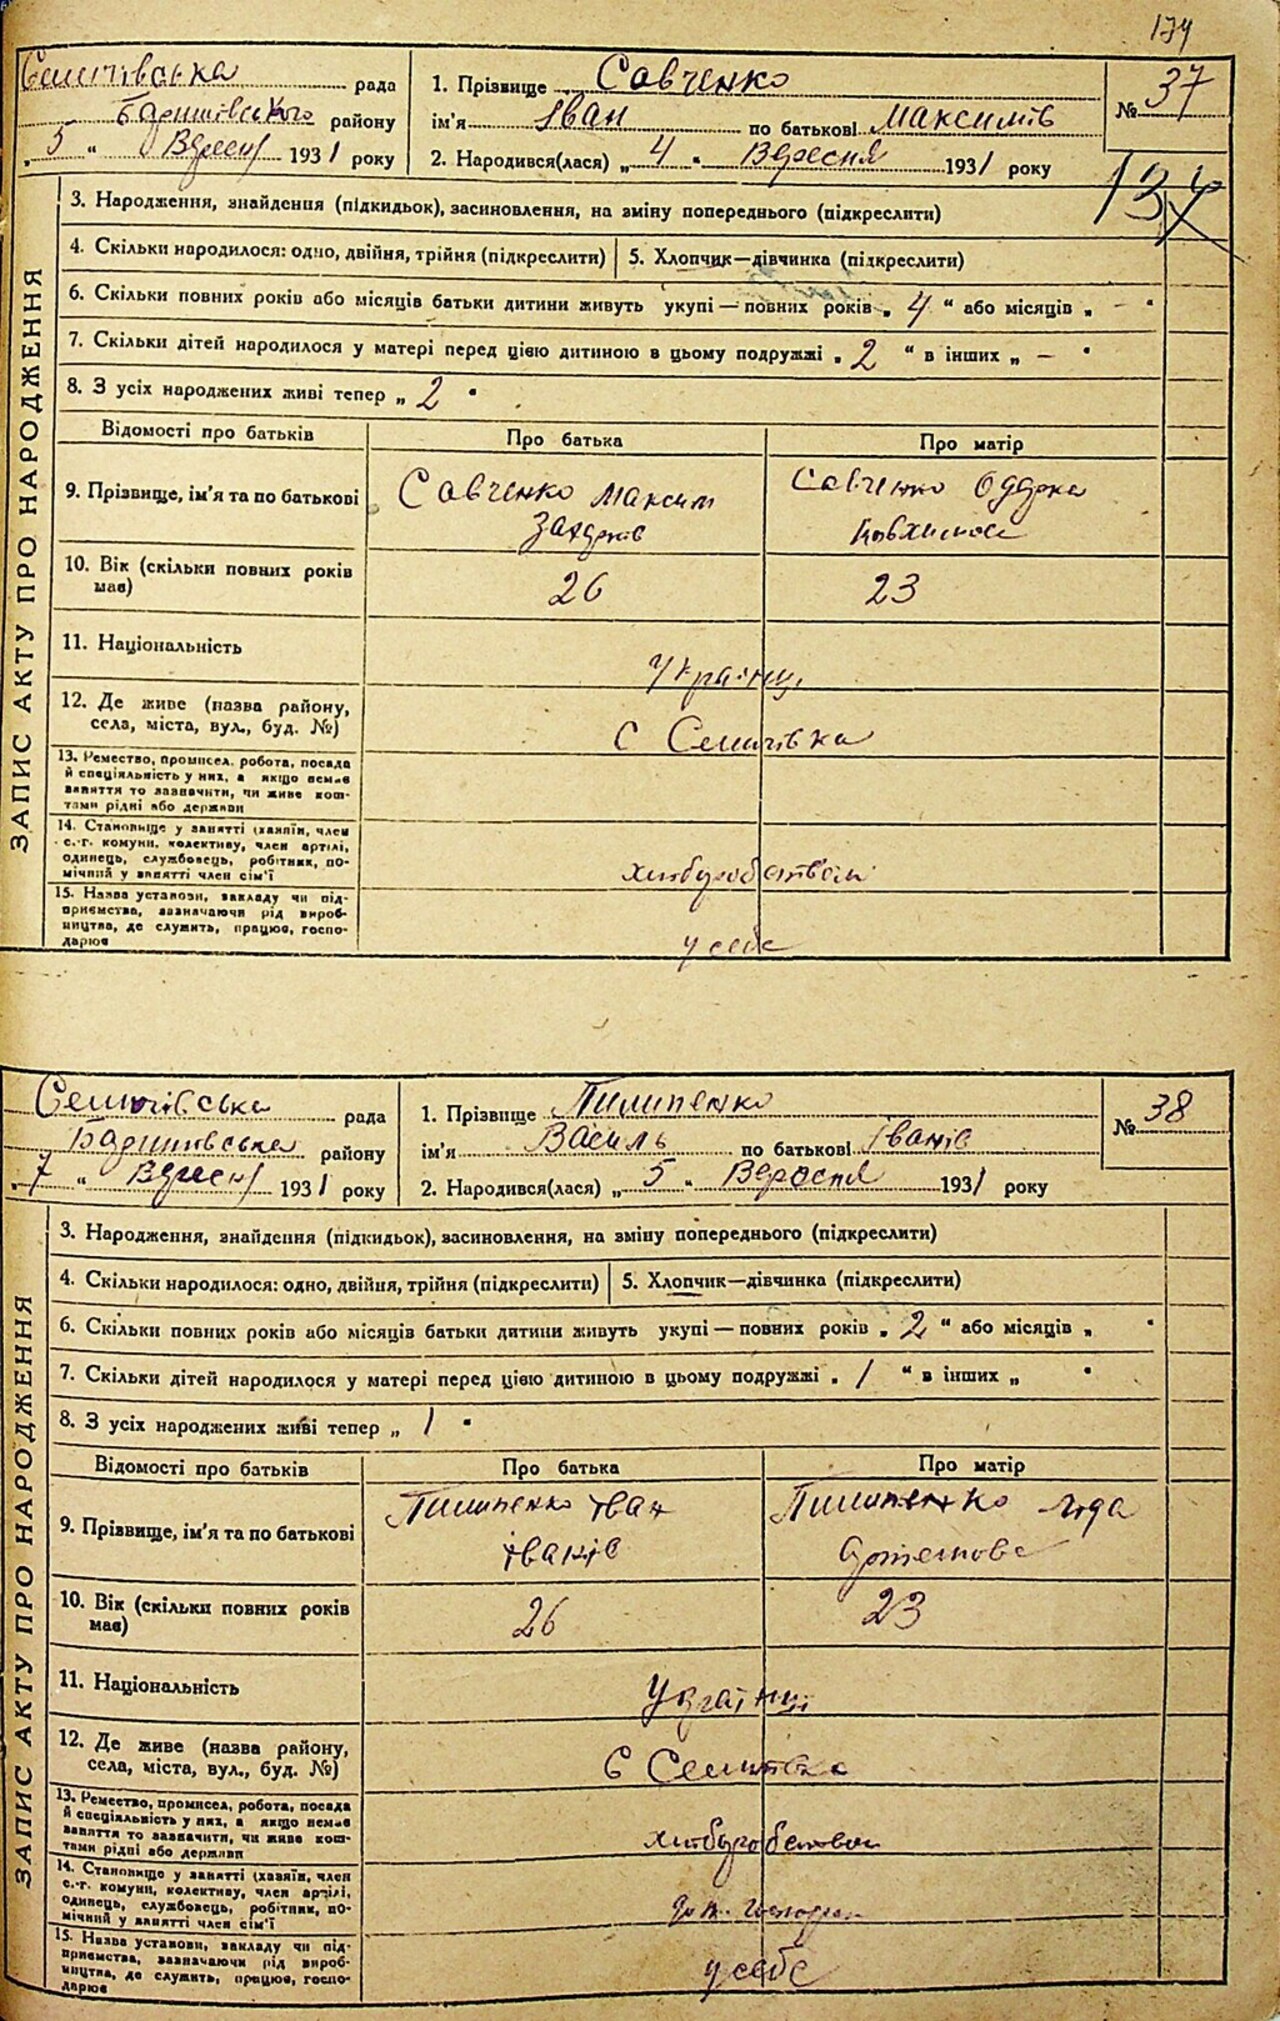 174
Семичівська рада
Баришівського району
„ 5 “ Вересн 1931 року
1. Прізвище Савченко
ім'я Іван по батькові Максимів
2. Народився(лася) „ 4 “ Вересня 1931 року
№ 37
134
ЗАПИС АКТУ ПРО НАРОДЖЕННЯ
3. Народження, знайдення (підкидьок), засиновлення, на зміну попереднього (підкреслити)
4. Скільки народилося: одно, двійня, трійня (підкреслити) 5. Хлопчик—дівчинка (підкреслити)
6. Скільки повних років або місяців батьки дитини живуть укупі — повних років „ 4 “ або місяців „ - “
7. Скільки дітей народилося у матері перед цією дитиною в цьому подружжі „ 2 “ в інших „ — “
8. З усіх народжених живі тепер „ 2 “
Відомості про батьків Про батька Про матір
9. Прізвище, ім'я та по батькові
Савченко Максим
Захарків
Савченко Одарка
10. Вік (скільки повних років має) 26 23
11. Національність Українці
12. Де живе (назва району, села, міста, вул., буд. №) С Семичівка
13. Ремество, промисел, робота, посада
й спеціяльність у них, а якщо немає
заняття то зазначити, чи живе кош-
тами рідні або держави
14. Становище у занятті (хазяїн, член
с.-г. комуни, колективу, член артілі,
одинець, службовець, робітник, по-
мічний у занятті член сім'ї
хліборобством
15. Назва установи, закладу чи під-
приємства, зазначаючи рід вироб-
ництва, де служить, працює, госпо-
дарює
у себе
Семичівська рада
Баришівська району
„ 7 “ Вересн 1931 року
1. Прізвище Пилипенко
ім'я Василь по батькові Іванів
2. Народився(лася) „ 5 “ Вересня 1931 року
№ 38
ЗАПИС АКТУ ПРО НАРОДЖЕННЯ
3. Народження, знайдення (підкидьок), засиновлення, на зміну попереднього (підкреслити)
4. Скільки народилося: одно, двійня, трійня (підкреслити) 5. Хлопчик—дівчинка (підкреслити)
6. Скільки повних років або місяців батьки дитини живуть укупі — повних років „ 2 “ або місяців „ “
7. Скільки дітей народилося у матері перед цією дитиною в цьому подружжі „ 1 “ в інших „ “
8. З усіх народжених живі тепер „ 1 “
Відомості про батьків Про батька Про матір
9. Прізвище, ім'я та по батькові
Пилипенко Іван
Іванів
Пилипенко
10. Вік (скільки повних років має) 26 23
11. Національність Українці
12. Де живе (назва району, села, міста, вул., буд. №) С Семичівка
13. Ремество, промисел, робота, посада
й спеціяльність у них, а якщо немає
заняття то зазначити, чи живе кош-
тами рідні або держави
хліборобством
14. Становище у занятті (хазяїн, член
с.-г. комуни, колективу, член артілі,
одинець, службовець, робітник, по-
мічний у занятті член сім'ї
15. Назва установи, закладу чи під-
приємства, зазначаючи рід вироб-
ництва, де служить, працює, госпо-
дарює
у себе